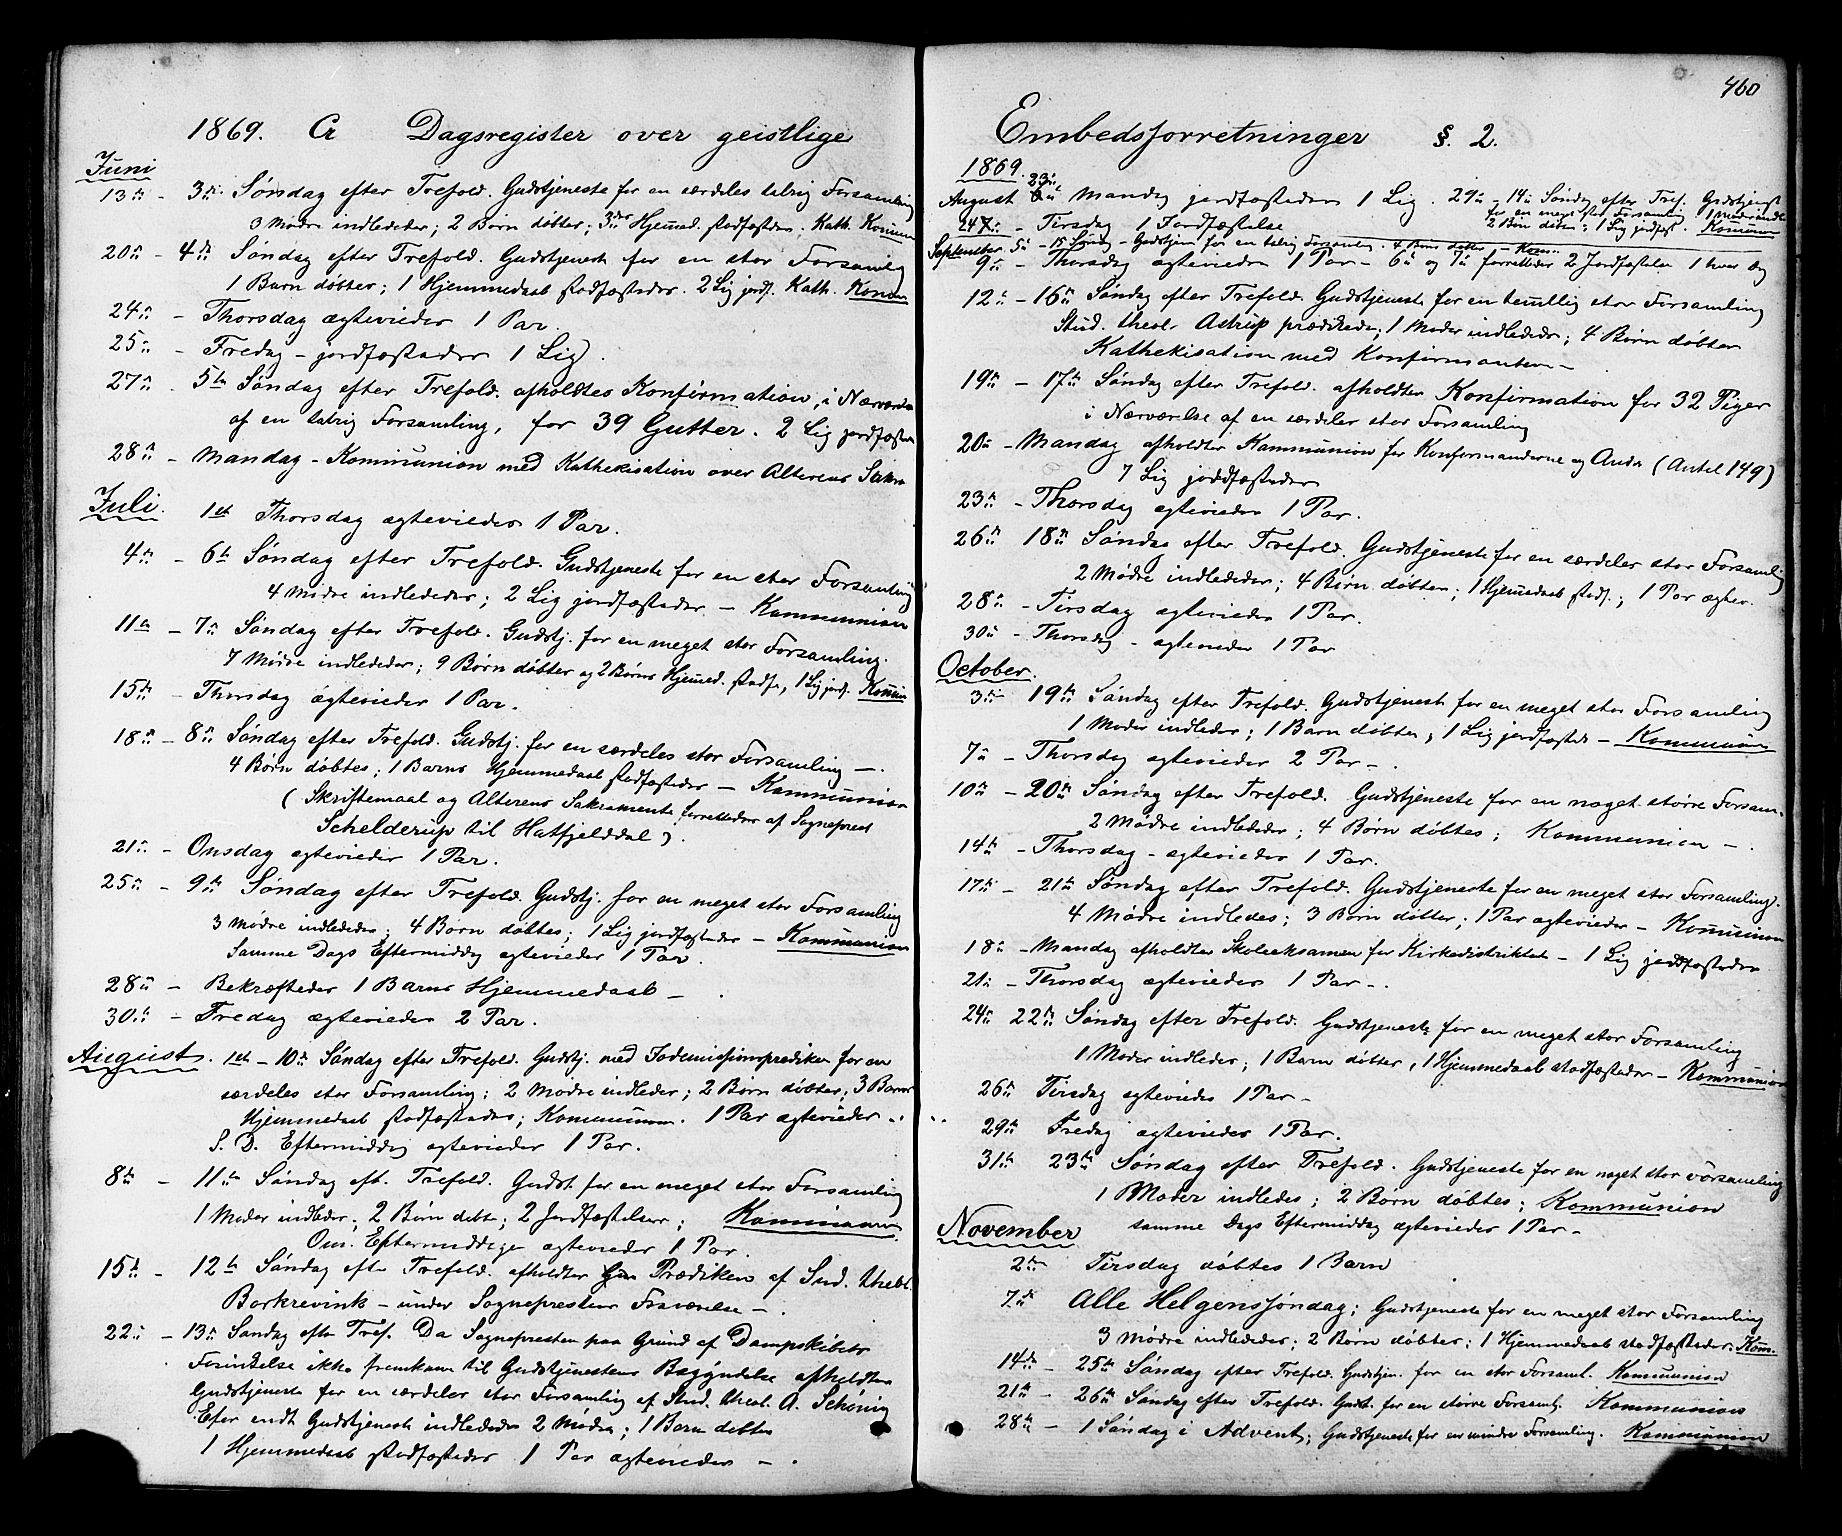 1869. A Dagsregister over geistlige
Juni
13de - 3de Søndag efter Trefold. Gudstjeneste for en særdeles talrig Forsamling
3 Mødre indlededes; 2 Børn døbtes; 3des Hjemmed. stadfæstedes. Kath. Kommun
20de - 4de Søndag efter Trefold. Gudstjeneste for en stor Forsamling
1 Barn døbtes; 1 Hjemmedaab stadfæstedes. 2 Lig jordf. Kath. Komm
24de - Thorsdag ægteviedes 1 Par.
25de - Fredag - jordfæstedes 1 Lig.
27de - 5te Søndag efter Trefold. afholdtes Konfirmation, i Nærværelse
af en talrig Forsamling, for 39 Gutter. 2 Lig jordfæstedes
28de - Mandag - Kommunion med Kathekisation over Alterens Sakra
Juli. 1ste Thorsdag ægteviedes 1 Par.
4de - 6te Søndag efter Trefold. Gudstjeneste for en stor Forsamling
4 Mødre indlededes; 2 Lig jordfæstedes - Kommunion
11te - 7de Søndag efter Trefold. Gudstj. for en meget stor Forsamling.
7 Mødre indlededes; 9 Børn døbtes og 2 Børns Hjemmed. stadf., 1 Lig jordf. Kommun
15de - Thorsdag ægteviedes 1 Par.
18de - 8de Søndag efter Trefold. Gudstj. for en særdeles stor Forsamling -.
4 Børn døbtes; 1 Barns Hjemmedaab stadfæstedes - Kommunion
(Skriftemaal og Alterens Sakramente forrettedes af Sogneprest
Schelderup til Hatfjelddal).
21de - Onsdag ægteviedes 1 Par.
25de - 9de Søndag efter Trefold. Gudstj. for en meget stor Forsamling
3 Mødre indlededes; 4 Børn døbtes; 1 Lig jordfæstedes - Kommunion
Samme Dags Eftermiddag ægteviedes 1 Par.
28de - Bekræftedes 1 Barns Hjemmedaab -.
30te - Fredag ægteviedes 2 Par.
August. 1ste - 10de Søndag efter Trefold. Gudstj. med Jodemissionsprediken for en
særdeles stor Forsamling; 2 Mødre indleder; 2 Børn døbtes; 3 Barns
Hjemmedaab stadfæstedes; Kommunion. 1 Par ægteviedes -.
S. D. Eftermiddag ægteviedes 1 Par.
8de - 11te Søndag eft. Trefold. Gudst. for en meget stor Forsamling
1 Moder indledes; 2 Børn døbt; 2 Jordfæstelser; Kommunion
Om Eftermiddagen ægteviedes 1 Par.
15de - 12te Søndag eft. Trefold. afholdtes Prædiken af Stud. theol.
Borkrevink - under Sogneprestens Fraværelse -.
22de - 13de Søndag efter Tref. Da Sognepresten paa Grund af Dampskibets
Forsinkelse ikke fremkom til Gudstjenestens Begyndelse afholdtes
Gudstjeneste for en særdeles stor Forsamling af Stud. theol. A. Schøning
Efter endt Gudstjeneste indlededes 2 Mødre; 1 Barn døbtes
1 Hjemmedaab stadfæstedes 1 Par ægteviedes -.
460
Embedsforretninger §. 2.
1869.
August 23de Mandag jordfæstedes 1 Lig. 29de - 14de Søndag efter Tref. Gudstjenst
for en meget stor Forsamling 1 Moder indledtes
24de - Tirsdag 1 Jordfæstelse 2 Børn døbtes; 1 Lig jordfæst. Kommunion
September 5te - 15 Søndag - Gudstjen for en talrig Forsamling. 4 Børn døbtes - Kom.
9de - Thorsdag ægteviedes 1 Par - 6te og 7de forrettedes 2 Jordfæstelser 1 hver Dag
12te - 16de Søndag efter Trefold. Gudstjeneste for en temmelig stor Forsamling
Stud. theol. Astrup prædikede; 1 Moder indledede; 4 Børn døbtes
Kathekisation med Konfirmanterne -
19de - 17de Søndag efter Trefold. afholdtes Konfirmation for 32 Piger
i Nærværelse af en særdeles stor Forsamling
20de - Mandag afholdtes Kommunion for Konfirmanderne og Andre (Antal 149)
7 Lig jordfæstedes
23de - Thorsdag ægteviedes 1 Par.
26de 18de Søndag efter Trefold. Gudstjeneste for en særdeles stor Forsamling
2 Mødre indlededes; 4 Børn døbtes; 1 Hjemmedaab stadf.; 1 Par ægtev.
28de - Tirsdag ægteviedes 1 Par.
30de - Thorsdag - ægteviedes 1 Par
October.
3die 19de Søndag efter Trefold. Gudstjeneste for en meget stor Forsamling
1 Moder indledes; 1 Barn døbtes; 1 Lig jordfæstedes - Kommunion
7de - Thorsdag ægteviedes 2 Par -.
10de - 20de Søndag efter Trefold. Gudstjeneste for en noget større Forsam.
2 Mødre indlededes; 4 Børn døbtes; Kommunion -.
14de - Thorsdag - ægteviedes 1 Par.
17de - 21de Søndag efter Trefold. Gudstjeneste for en meget stor Forsamling.
4 Mødre indledes; 3 Børn døbtes; 1 Par ægteviedes - Kommunion
18de - Mandag afholdtes Skoleeksamen for Kirkedistriktet - 1 Lig jordfæstedes
21de - Thorsdag ægteviedes 1 Par -.
24de 22de Søndag efter Trefold. Gudstjeneste for en meget stor Forsamling
1 Moder indledes; 1 Barn døbtes, 1 Hjemmedaab stadfæstedes - Kommunion
26de Tirsdag ægteviedes 1 Par -
29de Fredag ægteviedes 1 Par.
31te 23de Søndag efter Trefold. Gudstjeneste for en noget stor Forsamling
1 Moder indledes; 2 Børn døbtes; Kommunion
samme Dags Eftermiddag ægteviedes 1 Par -
November
2den Tirsdag døbtes 1 Barn
7de Alle Helgenssøndag; Gudstjeneste for en meget stor Forsamling
3 Mødre indlededes; 2 Børn døbtes; 1 Hjemmedaab stadfæstedes. Kom.
14de - 25de Søndag efter Trefold. Gudstjen. for en stor Forsaml. Kommunion
21de - 26de Søndag efter Trefold. Gudst. for en større Forsaml. Kommunion
28de - 1 Søndag i Advent; Gudstjeneste for en mindre Forsamling. Kommunion